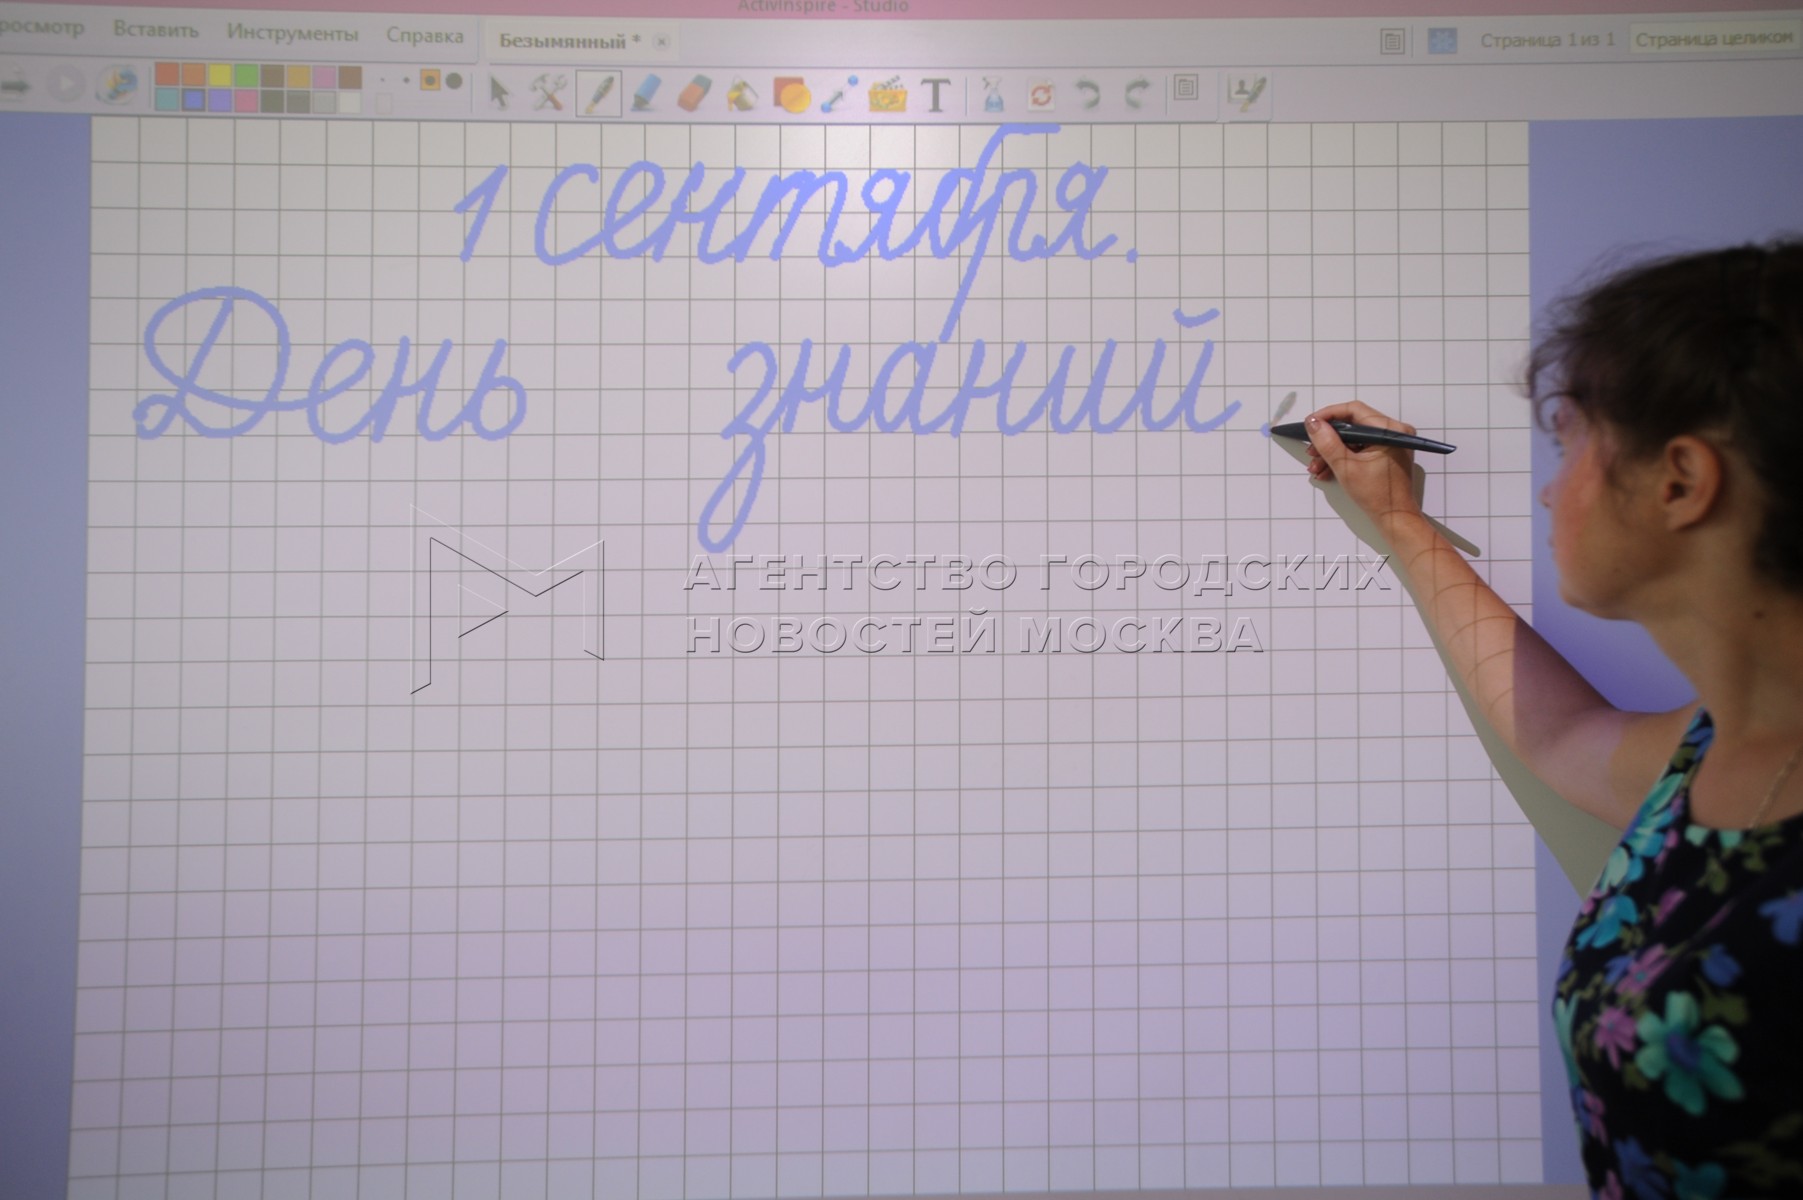 ActivInspire - Studio
росмотр Вставить Инструменты Справка Безымянный * Страница 1 из 1 Страница целиком
T
1 сентября.
День знаний.
АГЕНТСТВО ГОРОДСКИХ
НОВОСТЕЙ МОСКВА